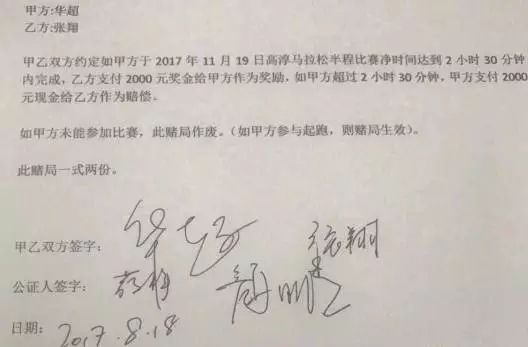 甲方:华超
乙方:张翔
甲乙双方约定如甲方于 2017 年 11 月 19 日高淳马拉松半程比赛净时间达到 2 小时 30 分钟
内完成，乙方支付 2000 元奖金给甲方作为奖励，如甲方超过 2 小时 30 分钟，甲方支付 2000
元现金给乙方作为赔偿。
如甲方未能参加比赛，此赌局作废。（如甲方参与起跑，则赌局生效）。
此赌局一式两份。
甲乙双方签字: 华超 张翔
公证人签字:
日期: 2017.8.18